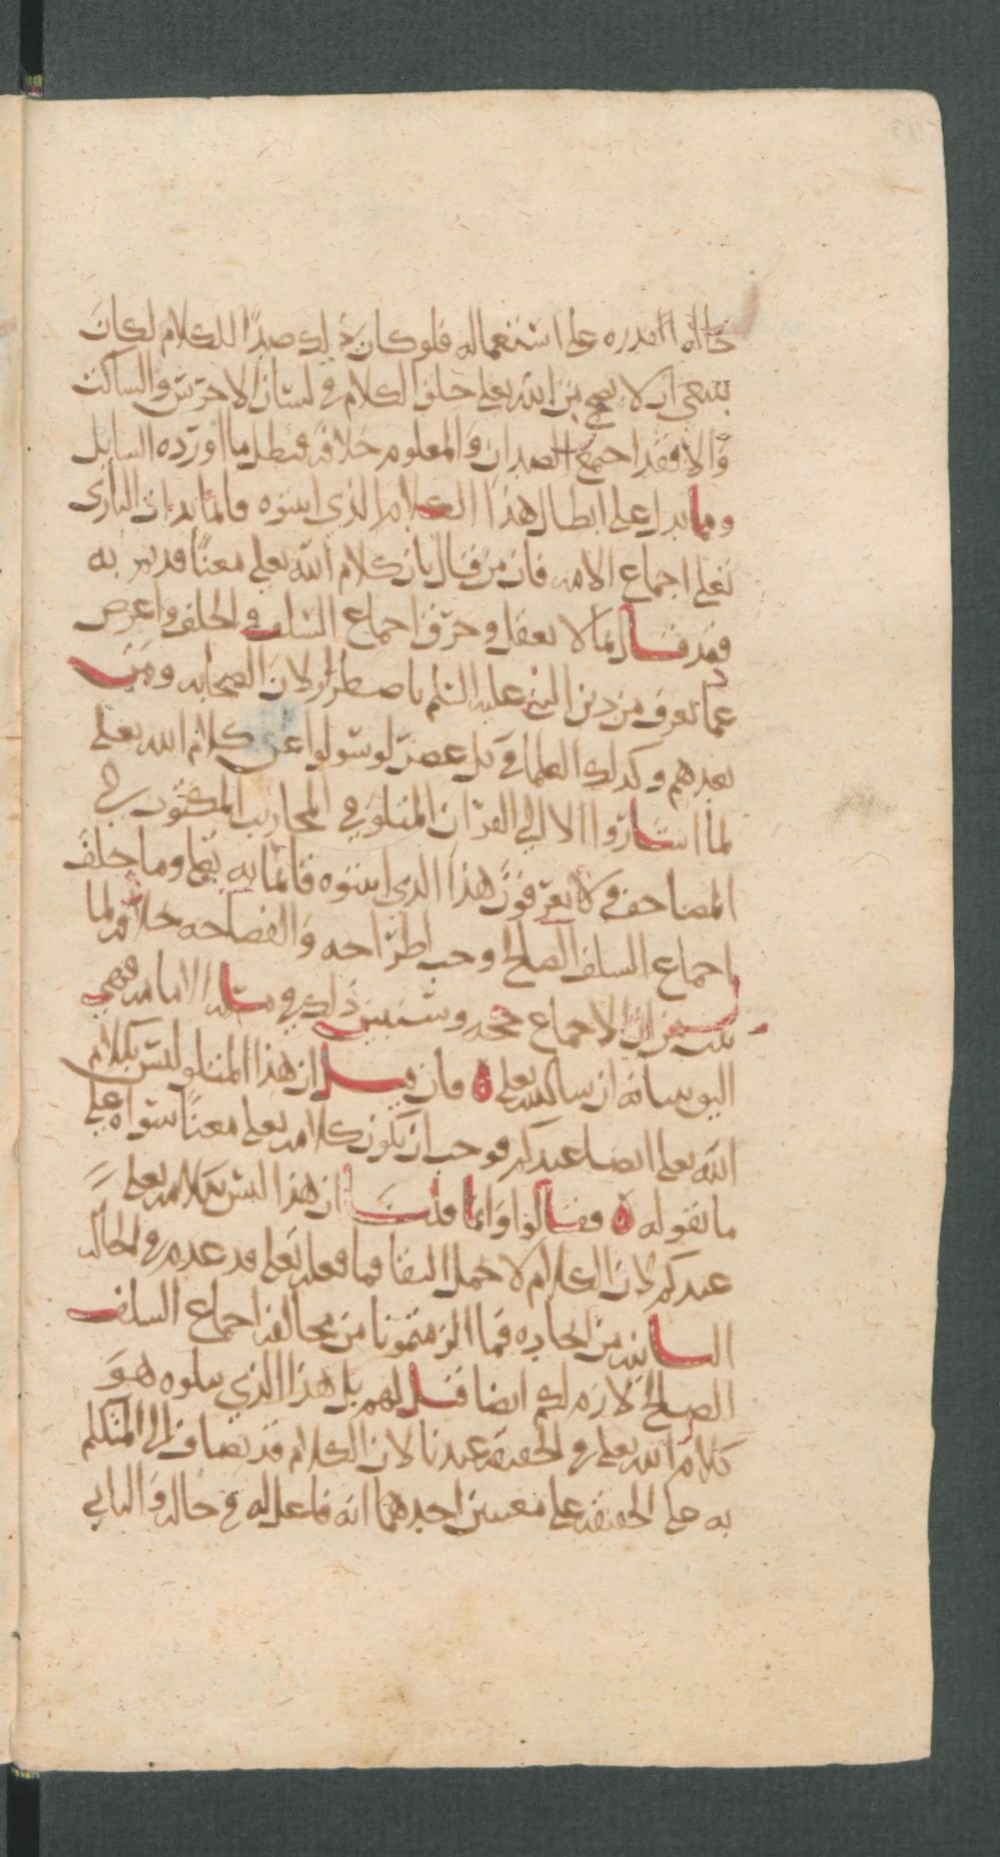 حاله القدره على استعماله فلو كان ذلك ضدًا للكلام لكان
ينبغي ان لا يصح من الله تعلى خلق الكلام في لسان الاخرس والساكت
والا فقد اجتمع الضدان والمعلوم خلافه فبطل ما اورده السايل
ومما يدل على ابطال هذا الكلام الذي اثبتوه قائما بذات الباري
تعلى اجماع الامه فان من قال بان كلام الله تعلى معنًا قديم به
فقد قال بما لا يعقل وخرق اجماع السلف والخلف واعرض
عما نعرف من دين النبي عليه السلم باضطرار لان الصحابه ومن
بعدهم وكذلك العلما في كل عصر لو سولوا عن كلام الله تعلى
لما اشاروا الا الى القرآن المتلو في المحاريب المكتوب في
المصاحف لا يعرفون هذا الذي اثبتوه قائما به تعلى وما خالف
اجماع السلف الصالح وجب اطراحه
ان الاجماع حجه وسنبين ذلك في مسله الامامه فهي
اليق بمسايله ان سا الله تعلى ه فان قيل ان هذا المتلو ليس بكلام
الله تعلى ايضا عندكم فوجب ان يكون كلامه تعلى معنًا سواه على
ما نقوله ه فقالوا وانما قلنا ان هذا ليس بكلامه تعلى
عندكم لان الكلام لا يحتمل البقا فما فعله تعلى قد عدم في الحاله
الثانيه من ايجاده فما الزمتمونا من مخالفه اجماع السلف
الصالح لازم لكم ايضا قيل لهم بل هذا الذي نتلوه هو
كلام الله تعلى في الحقيقه عندنا لان الكلام قد يضاف الى المتكلم
به على الحقيقه على معنيين احدهما انه فاعل له في حاله والثاني